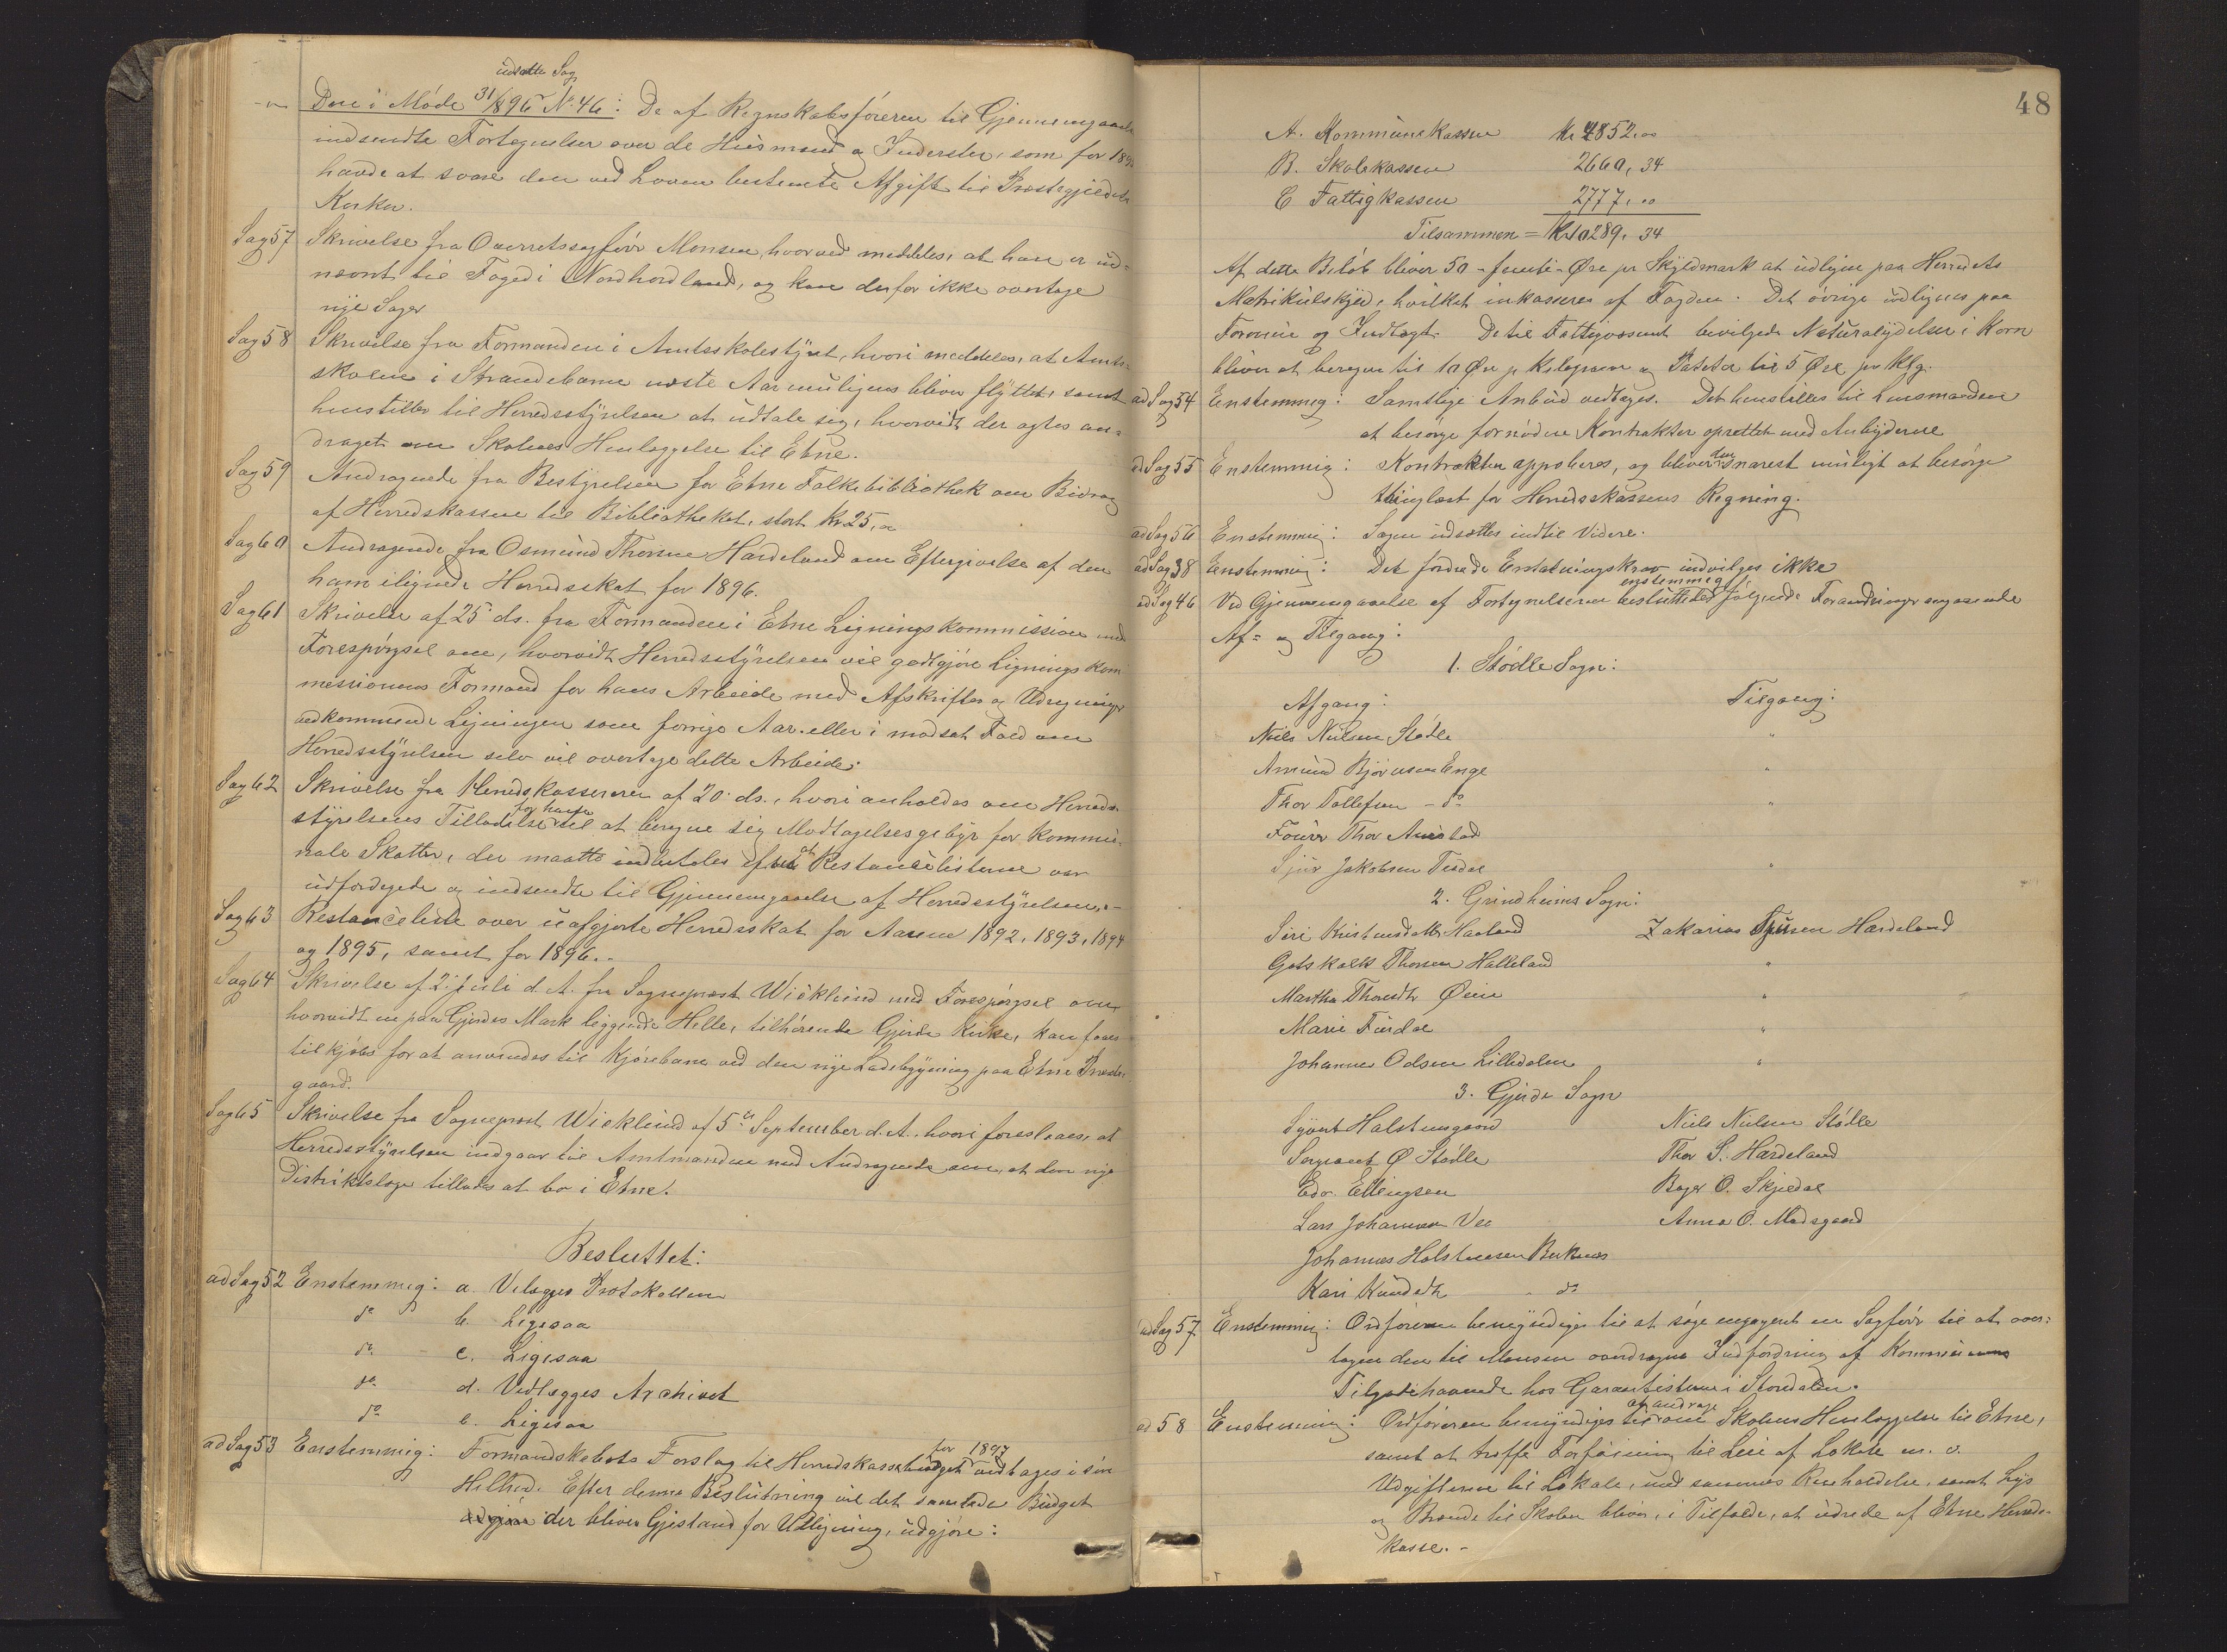 udsatte Sag
Den i Møde 31/8 96 No. 46: De af Regnskabsføreren til Gjennemgaaelse
indsendte Fortegnelser over de Husmænd og Inderster, som for 1895
havde at svare den ved Loven bestemte Afgift til Præstegjeldets
Kirker.
Sag 57 Skrivelse fra Overretssagfører Monsen, hvorved meddeles, at han er ud-
nævnt til Foged i Nordhordland, og kan derfor ikke overtage
nye Sager
Sag 58 Skrivelse fra Formanden i Amtsskolestyret, hvori meddeles, at Amts-
skolen i Strandebarm næste Aar muligens bliver flyttet, samt
henstiller til Herredsstyrelsen at udtale sig, hvorvidt der agtes an-
draget om Skolens Henlæggelse til Etne.
Sag 59 Andragende fra Bestyrelsen for Etne Folkebibliothek om Bidrag
af Herredskassen til Bibliotheket, stort Kr 25,00
Sag 60 Andragende fra Osmund Thorsen Hardeland om Eftergivelse af den
ham ilignede Herredsskat for 1896.
Sag 61 Skrivelse af 25 ds. fra Formanden i Etne Ligningskommission med
Forespørgsel om, hvorvidt Herredsstyrelsen vil godtgjøre Lignings kom-
missionens Formand for hans Arbeide med Afskrifter og Udregninger
vedkommende Ligningen som forrige Aar. eller i modsat Fald om
Herredsstyrelsen selv vil overtage dette Arbeide.
Sag 62 Skrivelse fra Herredskassereren af 20 ds., hvori anholdes om Herreds-
styrelsens Tilladelse for ham til at beregne sig Modtagelsesgebyr for kommu-
nale Skatter, der maatte indbetales efter at Restancelisterne var
udfærdigede og indsendte til Gjennemgaaelse af Herredsstyrelsen.-
Sag 63 Restanceliste over uafgjorte Herredsskat for Aarene 1892, 1893, 1894
og 1895, samt for 1896..
Sag 64 Skrivelse af 2 Juli d. A. fra Sogneprest Wicklund med Forespørgsel om
hvorvidt en paa Gjerdes Mark liggende Helle, tilhørende Gjerde Kirke, kan faaes
tilkjøbs for at anvendes til Kjørebane ved den nye Ladebygning paa Etne Præste-
gaard.
Sag 65 Skrivelse fra Sogneprest Wicklund af 5te September d. A. hvori foreslaaes, at
Herredsstyrelsen indgaar til Amtmanden med Andragende om, at den nye
Distriktslæge tillades at bo i Etne.
Besluttet:
ad Sag 52 Enstemmig: a. Velægges Protokollen
do b. Ligesaa
do c. Ligesaa
do d. Vedlægges Archivet
do e. Ligesaa
ad Sag 53 Enstemmig: Formandskabets Forslag til Herredskassebudget for 1897 vedtages i sin
Helhed. Efter denne Beslutning vil det samlede Budget
udgjøre der bliver Gjestand for Udligning, udgjøre:
48
A. Kommunekassen Kr 4852,00
B. Skolekassen 2660,34
C Fattigkassen 2777,00
Tilsammen = Kr 10289,34
Af dette Beløb bliver 50 - femti - Øre pr Skyldmark at udligne paa Herredets
Matrikulskyld, hvilket inkasseres af Fogden. Det øvrige udlignes paa
Formue og Indtægt. De til Fattigvæsenet bevilgede Naturalydelser i Korn
bliver at beregne til 10 Øre pr Kilogram og Poteter til 5 Øre pr Klg.
ad Sag 54 Enstemmig: Samtlige Anbud vedtages. Det henstilles til Lensmanden
at besørge fornødne Kontrakter oprettet med Anbyderne
ad Sag 55 Enstemmig: Kontrakten approberes, og bliver den snarest muligt at besørge
thinglæst for Herredskassens Regning.
ad Sag 56 Enstemmig: Sagen udsættes indtil Videre.
ad Sag 38 Enstemmig: Det fordrede Erstatningskrav indvilges ikke
ad Sag 46 Ved Gjennemgaaelse af Fortegnelserne besluttedes enstemmig følgende Forandringer angaaende
Af- og Tilgang:
1. Stødle Sogn:
Afgang: Tilgang:
Niels Nielsen Stødle "
Amund Bjørnsen Enge "
Thor Tollefsen - do "
Fourer Thor Austad
Sjur Jakobsen Tesdal "
2. Grindheims Sogn:
Siri Kristensdatter Haaland Zakarias Hardeland
Gotskalk Thorsen Halleland "
Martha Thorsdtr Øien "
Marie Tesdal "
Johannes Odsen Lilledalen "
3. Gjerde Sogn
Syvert Halstensgaard Niels Nielsen Stødle
Sergeant Ø Stødle Thor S. Hardeland
Edv. Ellingsen O. Skjeldal
Lars Johannesen Vee Anna O. Madsgaard
Johannes Halstensen
Kari Knudsdtr - do
ad Sag 57 Enstemmig: Ordføreren bemyndiges til at søge engageret en Sagfører til at over-
tagen den til Monsen overdragne Indfordring af Kommunens
Tilgodehavende hos Garantisterne i Stordalen.
ad 58 Enstemmig: Ordføreren bemyndiges til at andrage om Skolens Henlæggelse til Etne,
samt at træffe Forføining til Leie af Lokale m. v.
Udgifterne til Lokale, med sammes Renholdelse, samt Lys
og Brænde til Skolen bliver, i Tilfælde, at udrede af Etne Herreds-
kasse.-